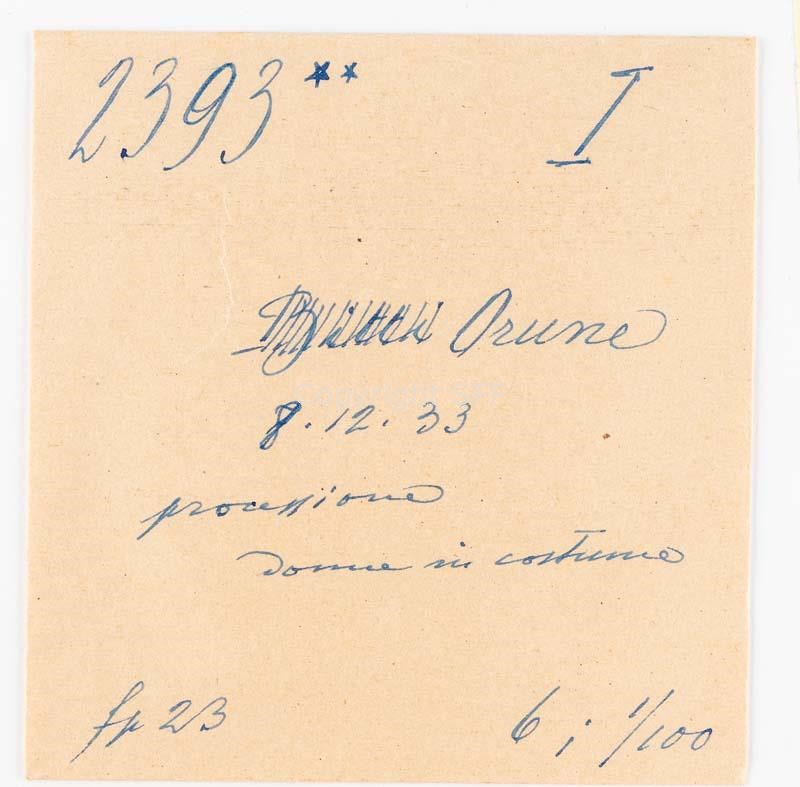 2393** I
Orune
8.12.33
processione
donne in costume
fp 23 6; 1/100